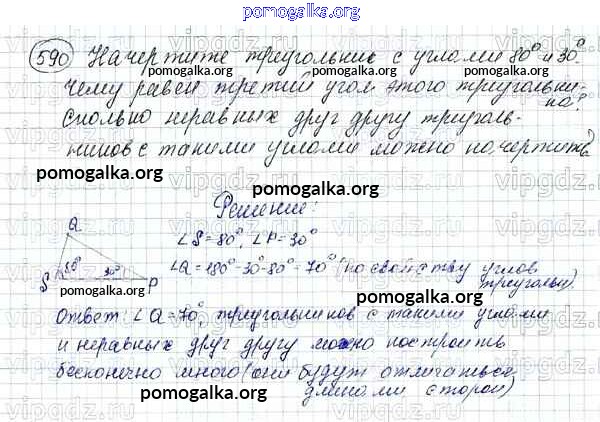 pomogalka.org
590 Начертите треугольник с углами 80° и 30°.
pomogalka.org pomogalka.org
Чему равен третий угол этого треугольни-
ка?
Сколько неравных друг другу треуголь-
ников с такими углами можно начертить?
pomogalka.org pomogalka.org pomogalka.org
Решение:
Q
∠S=80°, ∠P=30°
S 80° 30° P
∠Q=180°-30°-80°=70° (по свойству углов
треугольн).
pomogalka.org pomogalka.org
Ответ: ∠Q=70°, треугольников с такими углами
и неравных друг другу можно построить
pomogalka.org
бесконечно много (они будут отличаться
длинами сторон)
pomogalka.org pomogalka.org
vipgdz.ru vipgdz.ru vipgdz.ru